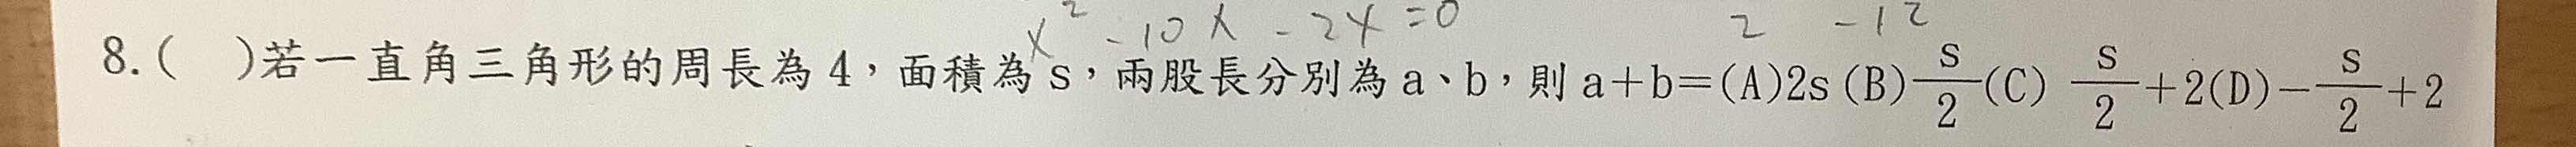 x² -10x -24=0 2 -12
8.( )若一直角三角形的周長為 4，面積為 s，兩股長分別為 a、b，則 a＋b＝(A)2s (B) s/2 (C) s/2＋2(D)－s/2＋2